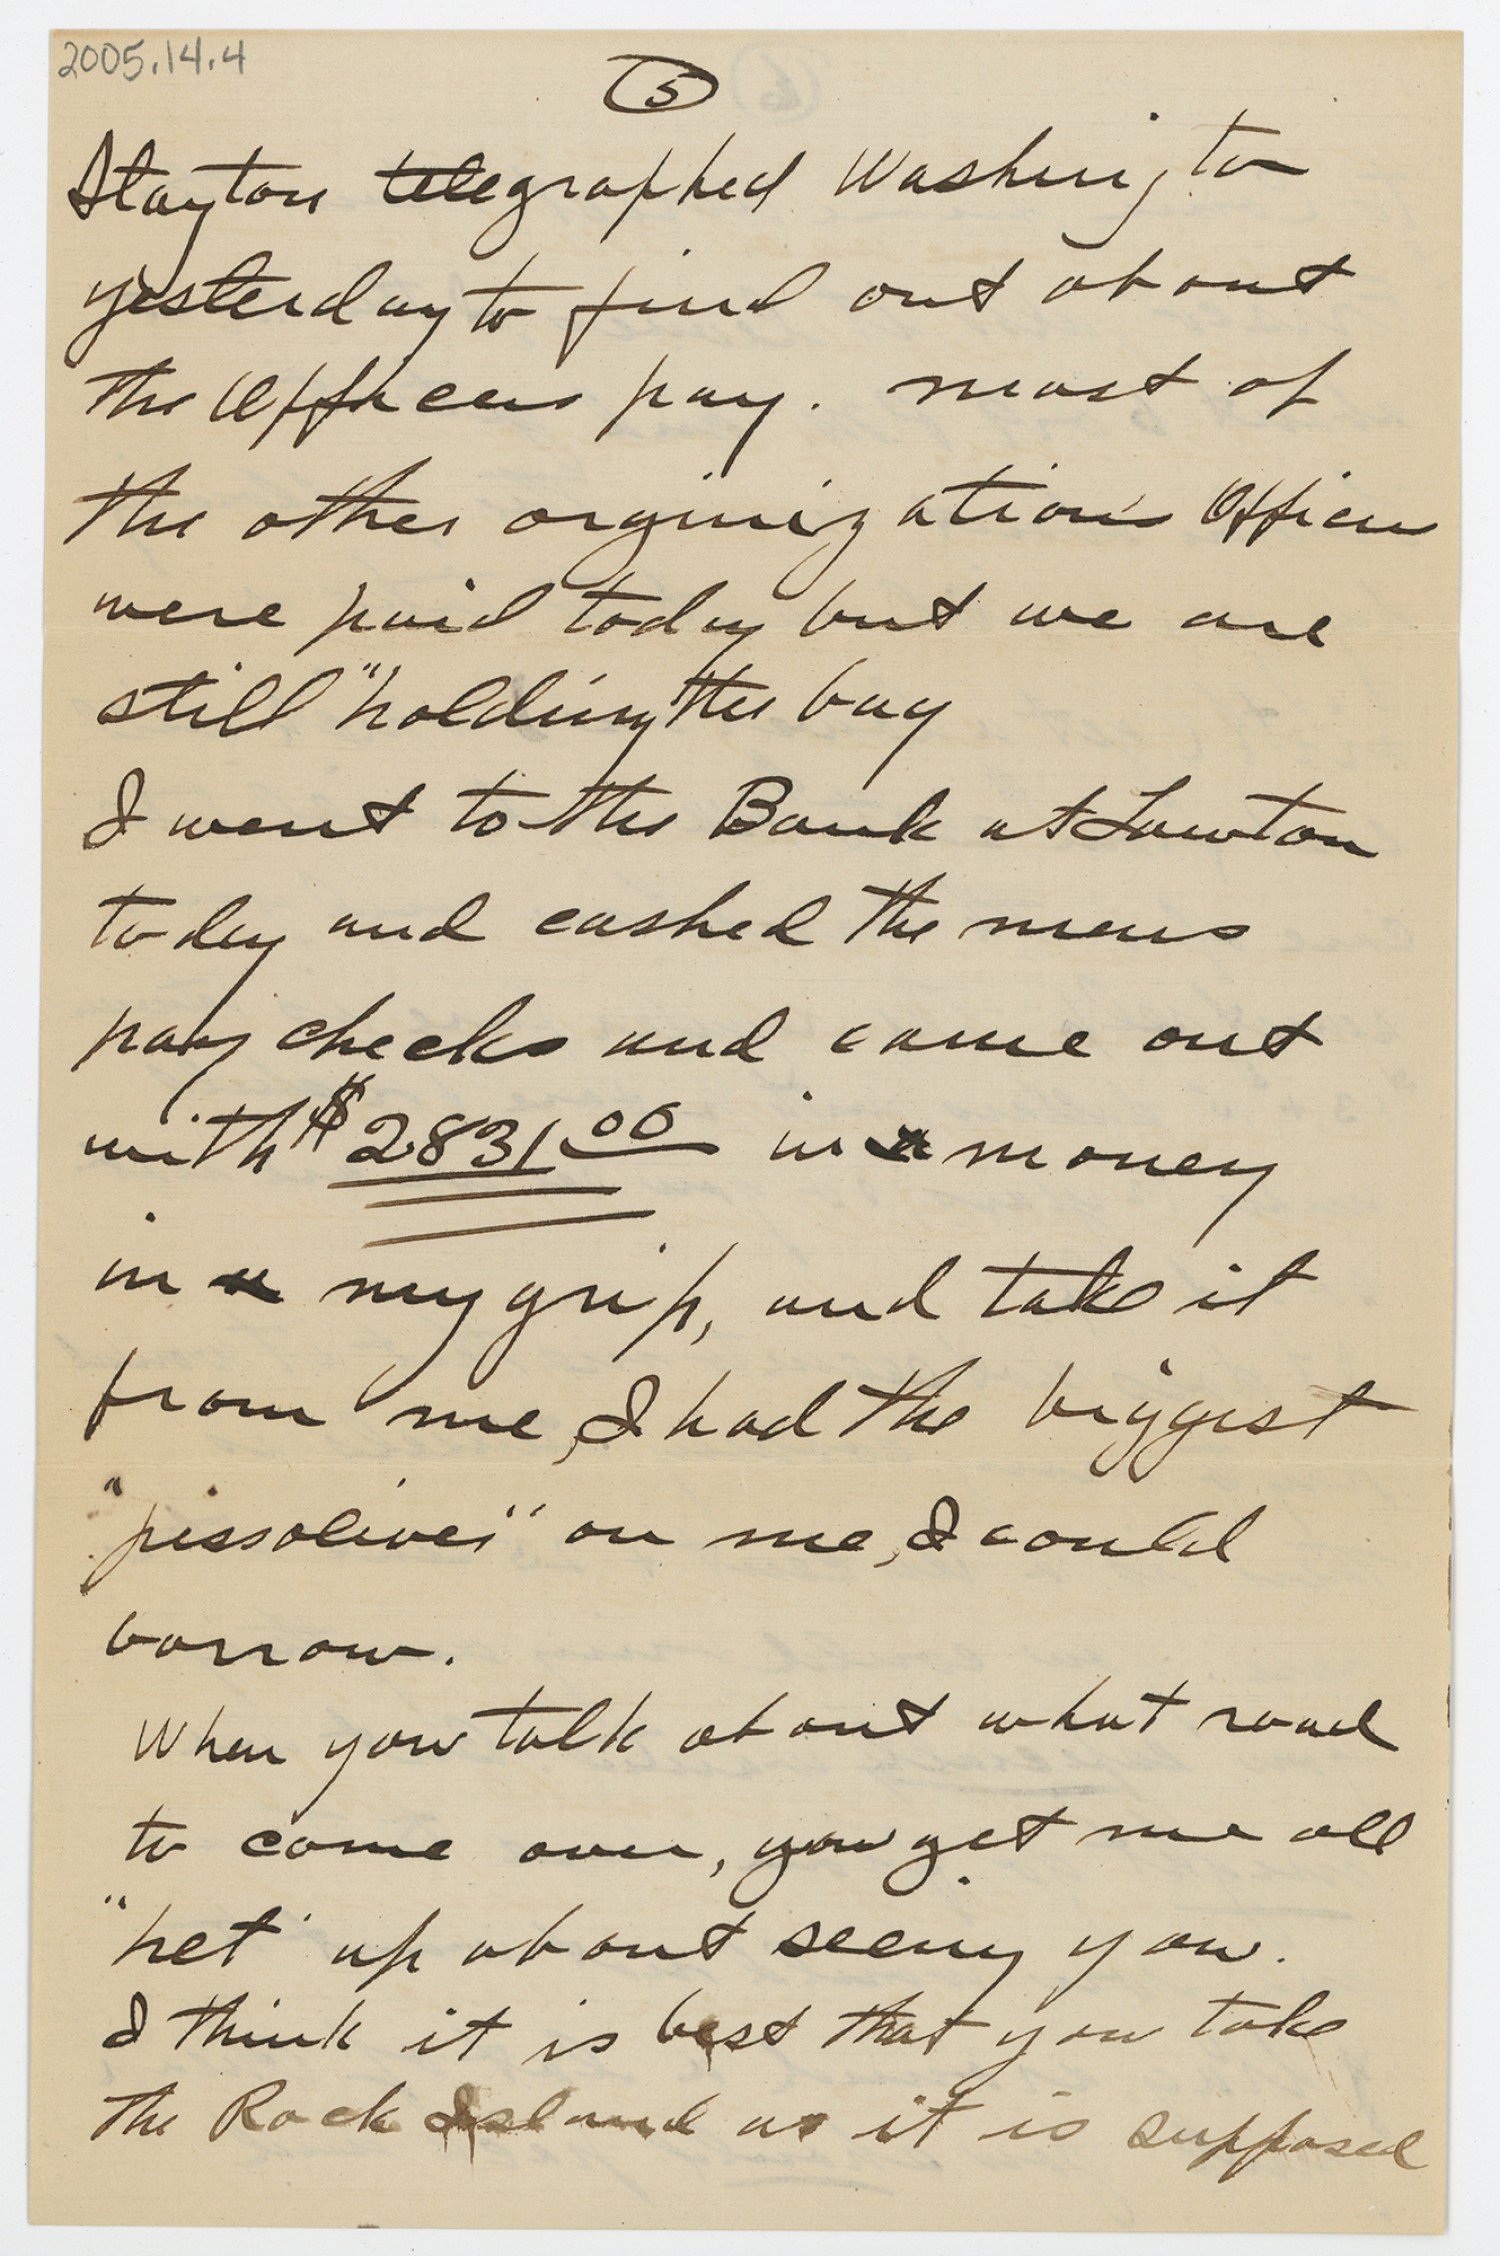 2005.14.4
5
Stayton telegraphed Washington
yesterday to find out about
the Officers pay. most of
the other orginizations Officers
were paid today but we are
still "holding the bag
I went to the Bank at Lawton
today and cashed the mens
pay checks and came out
with $2831 00 in money
in my grip, and take it
from me, I had the biggest
"pissoliver" on me, I could
borrow.
When you talk about what road
to come over, you get me all
"het" up about seeing you.
I think it is best that you take
the Rock Island as it is supposed